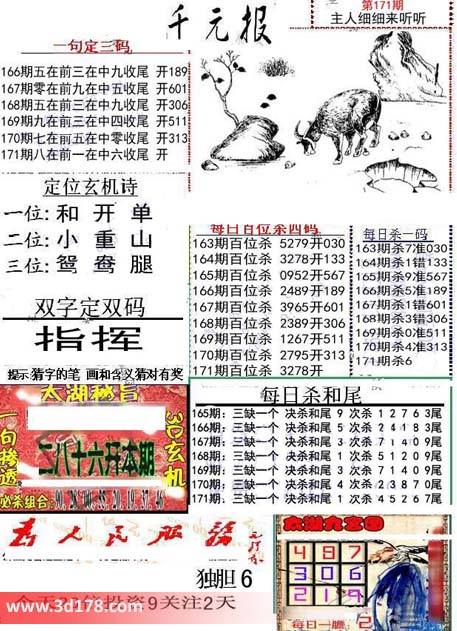 千元报
第171期
主人细细来听听
一句定三码
166期五在前三在中九收尾 开189
167期零在前九在中五收尾 开601
168期五在前三在中九收尾 开306
169期九在前三在中四收尾 开511
170期七在前五在中零收尾 开313
171期八在前一在中六收尾 开
定位玄机诗
一位: 和 开 单
二位: 小 重 山
三位: 鸳 鸯 腿
双字定双码
指挥
提示猜字的笔 画和含义猜对有奖
每日百位杀四码
163期百位杀 5279开030
164期百位杀 3278开133
165期百位杀 0952开567
166期百位杀 2489开189
167期百位杀 3965开601
168期百位杀 2389开306
169期百位杀 1267开511
170期百位杀 2795开313
171期百位杀 3278开
每日杀一码
163期杀7准030
164期杀1错133
165期杀9准567
166期杀5准189
167期杀1错601
168期杀1准306
169期杀0准511
170期杀4准313
171期杀6
太湖秘旨
一句惨透
3D玄机
二八十六开本期
必杀组合:
每日杀和尾
165期: 三缺一个 决杀和尾 9 次杀 1 2 7 6 3尾
166期: 三缺一个 决杀和尾 5 次杀 2 4 1 8 3尾
167期: 三缺一个 决杀和尾 3 次杀 7 1 4 0 9尾
168期: 三缺一个 决杀和尾 5 次杀 2 1 9 8 4尾
169期: 三缺一个 决杀和尾 1 次杀 5 2 0 6 4尾
170期: 三缺一个 决杀和尾 4 次杀 2 3 8 7 0尾
171期: 三缺一个 决杀和尾 1 次杀 4 5 2 6 7尾
为人民服务
独胆 6
投资9关注2天
太湖九宫图
4 8 7
3 0 6
2 1 9
每日一胆: 2
www.3d178.com